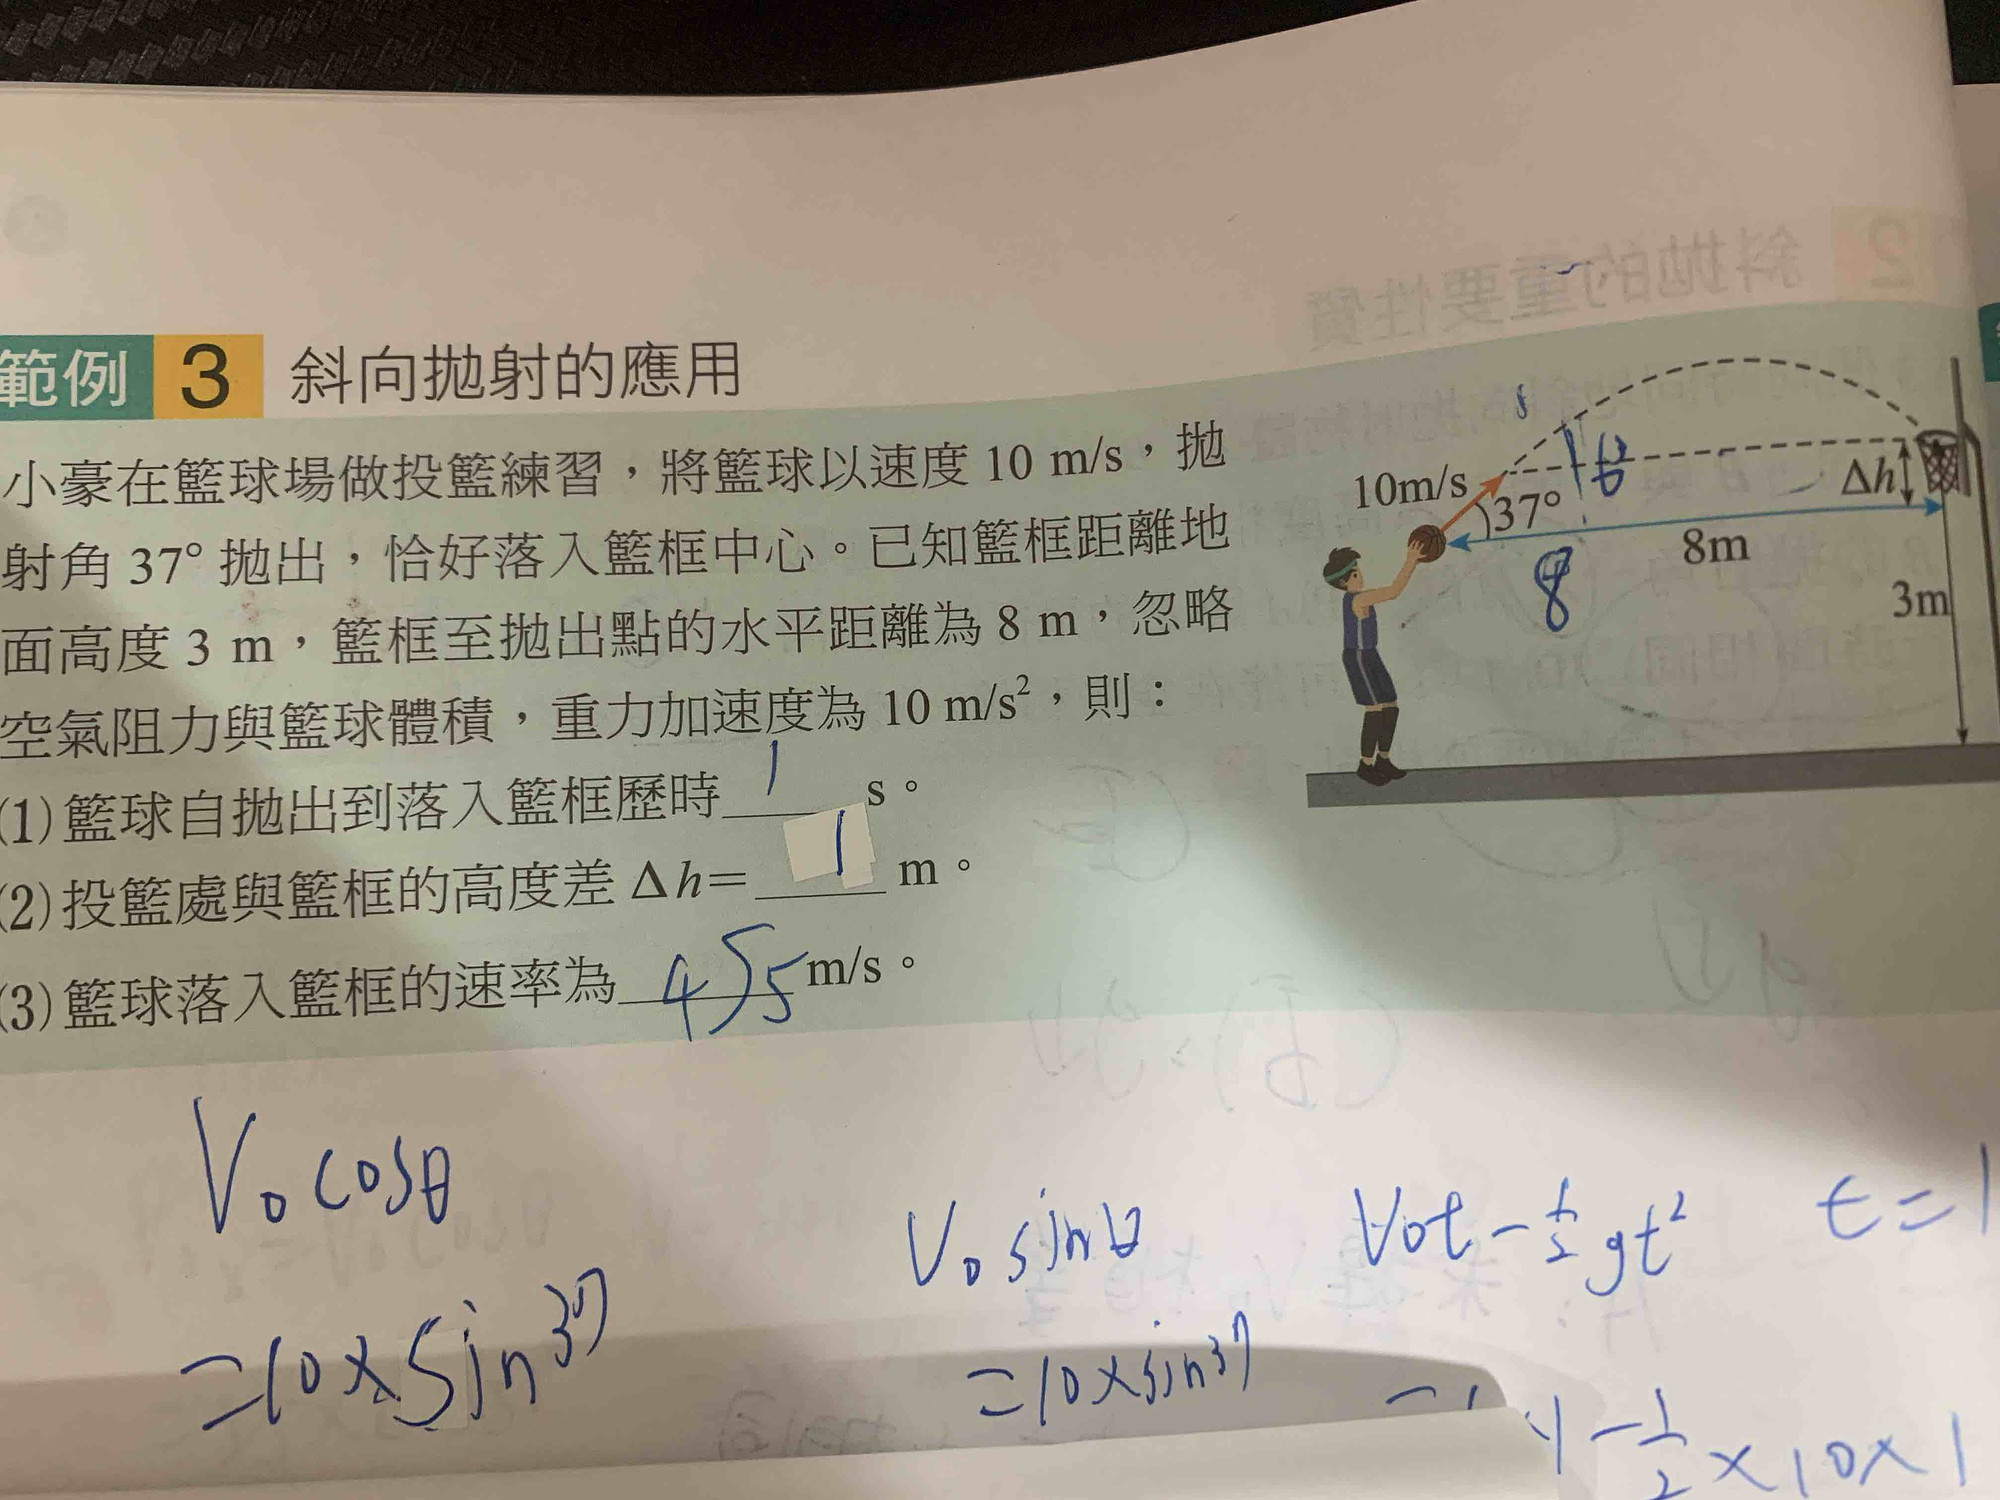 範例 3 斜向拋射的應用
小豪在籃球場做投籃練習，將籃球以速度 10 m/s，拋
射角 37° 拋出，恰好落入籃框中心。已知籃框距離地
面高度 3 m，籃框至拋出點的水平距離為 8 m，忽略
空氣阻力與籃球體積，重力加速度為 10 m/s²，則：
(1)籃球自拋出到落入籃框歷時 1 s。
(2)投籃處與籃框的高度差 Δh= 1 m。
(3)籃球落入籃框的速率為 4√5 m/s。
10m/s
37°
6
Δh
8m
8
3m
V₀cosθ
=10×sin37
V₀sinθ
=10×sin37
V₀t-½gt²
t=1
-½×10×1
斜拋的重要性質 2